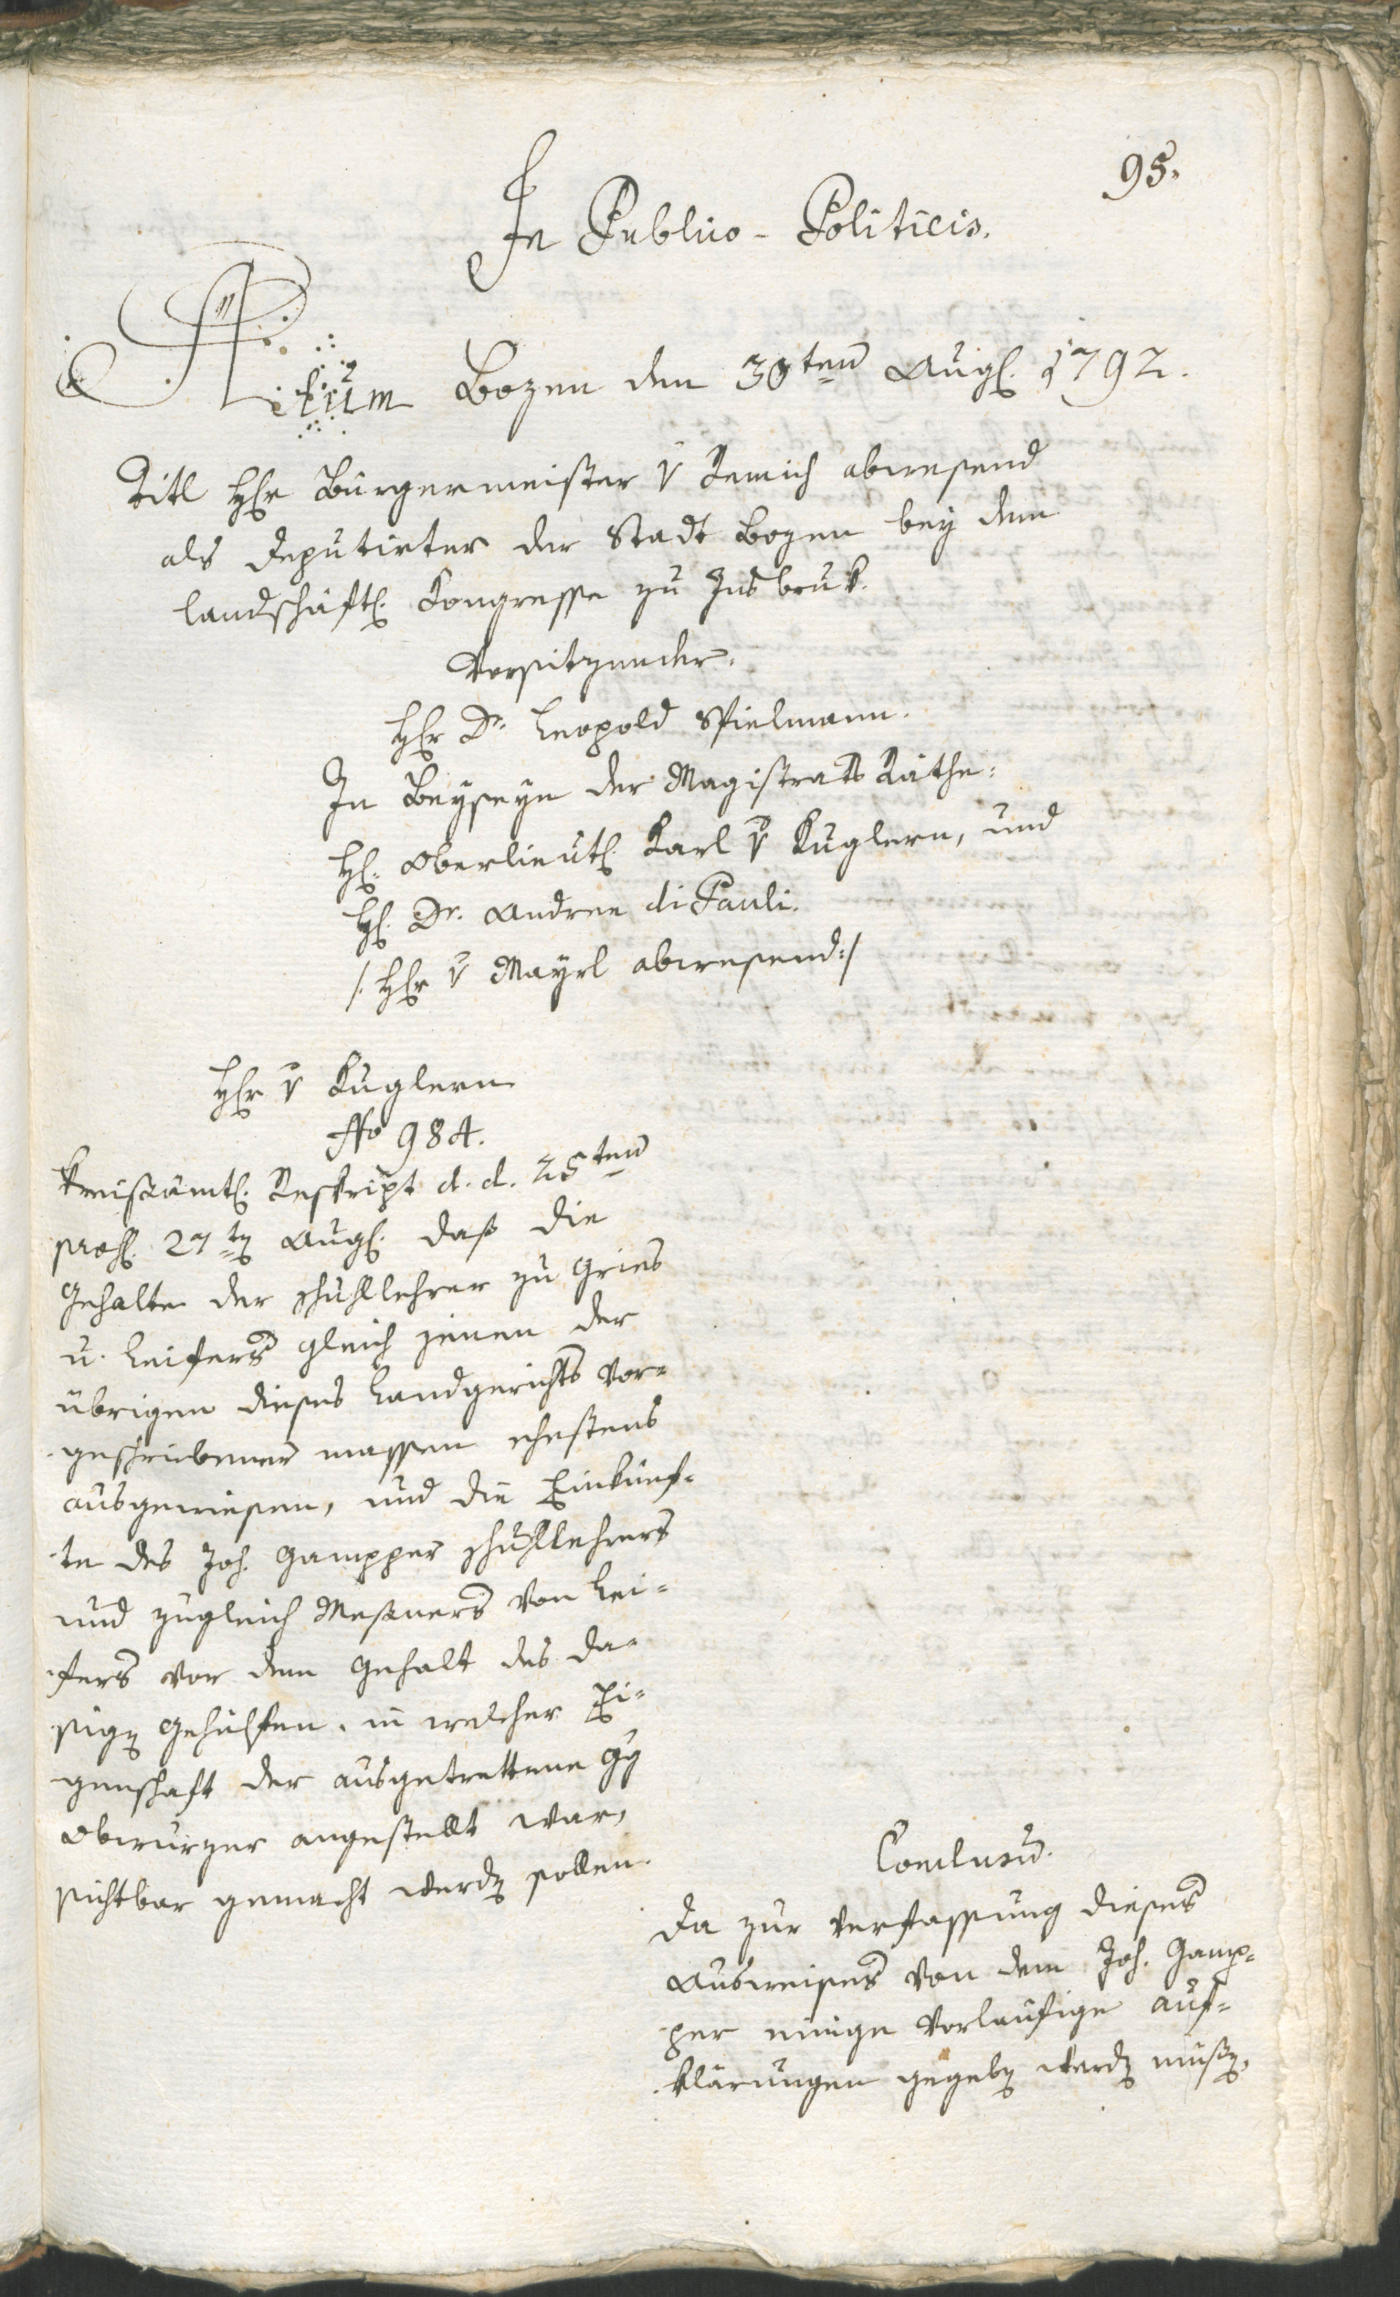 95.
In Publico-Politicis.
Actum Bozen den 30ten Aug. 1792.
Titl Hr Bürgermeister v Remich abwesend
als Deputirter der Stadt Bozen bey dem
landschäftl. Kongresse zu Insbruk.
Vorsitzender.
Hr Dr. Leopold Spielmann.
In Beyseyn der Magistrats Räthe:
H. Oberlieut. Karl v Kuglern, und
H. Dr. Andree di Pauli.
/: Hr v Mayrl abwesend :/
Hr v Kuglern
No 984.
Kreisämtl. Reskript d. d. 25ten
praes. 27ten Aug. daß die
Gehalte der Schullehrer zu Gries
u. Leifers gleich jenen der
übrigen dieses Landgerichts vor-
geschriebener massen ehestens
ausgewiesen, und die Einkünf-
te des Joh. Gampper Schullehrers
und zugleich Meßners von Lei-
fers vor dem Gehalt des da-
sigen Gehülfen, in welcher Ei-
genschaft der ausgetrettene
Obwurzer angestellt war,
sichtbar gemacht werden sollen.
Conclusum.
Da zur Verfassung dieses
Ausweises von dem Joh. Gamp-
per einige vorläufige Auf-
klärungen gegeben werden müßen,